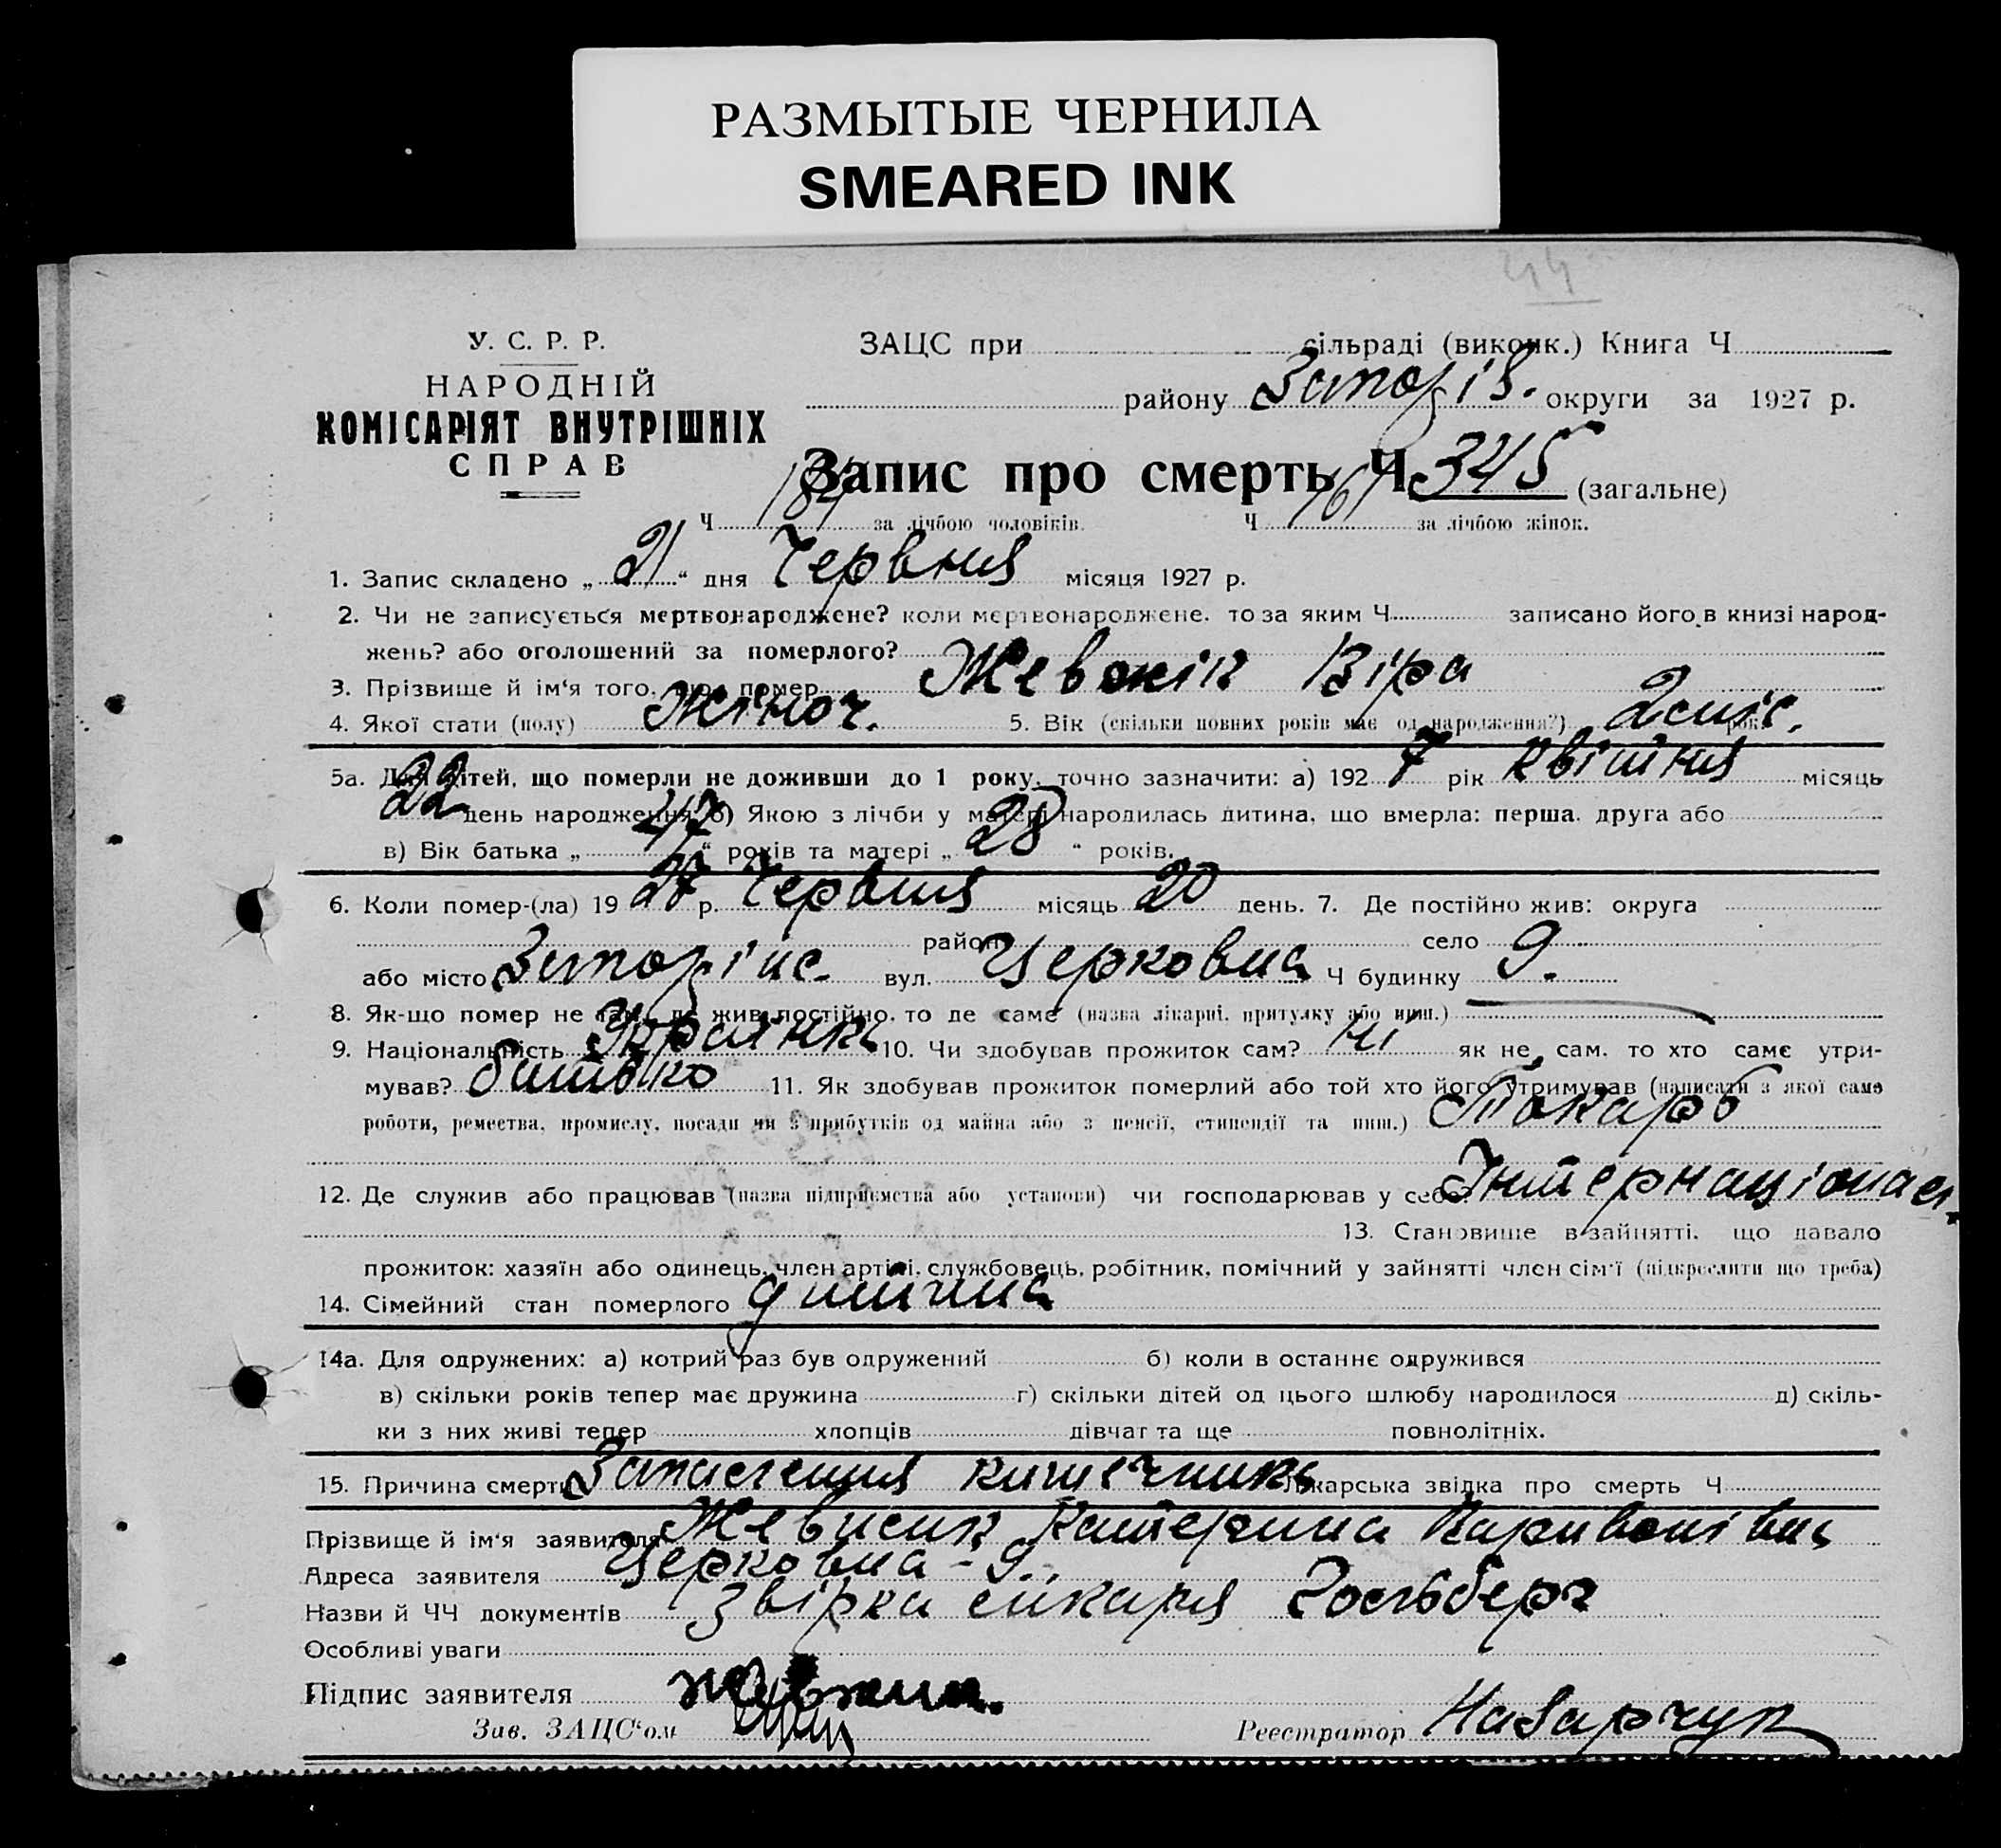 РАЗМЫТЫЕ ЧЕРНИЛА
SMEARED INK
44
У. С. Р. Р.
НАРОДНІЙ
КОМІСАРІЯТ ВНУТРІШНІХ
СПРАВ
ЗАЦС при сільраді (виконк.) Книга Ч
району Запоріз. округи за 1927 р.
Запис про смерть Ч 345 (загальне)
Ч 184 за лічбою чоловіків. Ч 161 за лічбою жінок.
1. Запис складено „ 21 “ дня Червня місяця 1927 р.
2. Чи не записується мертвонароджене? коли мертвонароджене. то за яким Ч записано його в книзі народ-
жень? або оголошений за померлого?
3. Прізвище й ім'я того, що помер Віра
4. Якої стати (полу) Жіноч. 5. Вік (скільки повних років має од народження?) 2 міс.
5а. Для дітей, що померли не доживши до 1 року, точно зазначити: а) 192 7 рік Квітня місяць
22 день народження б) Якою з лічби у матері народилась дитина, що вмерла: перша, друга або
в) Вік батька „ 47 “ років та матері „ 28 “ років.
6. Коли помер-(ла) 19 27 р. Червня місяць 20 день. 7. Де постійно жив: округа
район село
або місто Запоріжє вул. Церковна Ч будинку 9.
8. Як-що помер не там, де жив постійно, то де саме (назва лікарні, притулку або инш.)
9. Національність Українка 10. Чи здобував прожиток сам? Ні як не сам, то хто саме утри-
мував? батько 11. Як здобував прожиток померлий або той хто його утримував (написати з якої саме
роботи, ремества, промислу, посади чи з прибутків од майна або з пенсії, стипендії та инш.) Токарь
12. Де служив або працював (назва підприємства або установи) чи господарював у себе? Інтернаціонал.
13. Становище в зайнятті, що давало
прожиток: хазяїн або одинець, член артілі, службовець, робітник, помічний у зайнятті член сім'ї (підкреслити що треба)
14. Сімейний стан померлого дитина
14а. Для одружених: а) котрий раз був одружений б) коли в останнє одружився
в) скільки років тепер має дружина г) скільки дітей од цього шлюбу народилося д) скіль-
ки з них живі тепер хлопців дівчат та ще повнолітніх.
15. Причина смерти Запаления кишечника Лікарська звідка про смерть Ч
Прізвище й ім'я заявителя Катерина
Адреса заявителя Церковна - 9.
Назви й ЧЧ документів Звірка лікаря Гольберг
Особливі уваги
Підпис заявителя
Зав. ЗАЦС'ом Реєстратор Назарчук